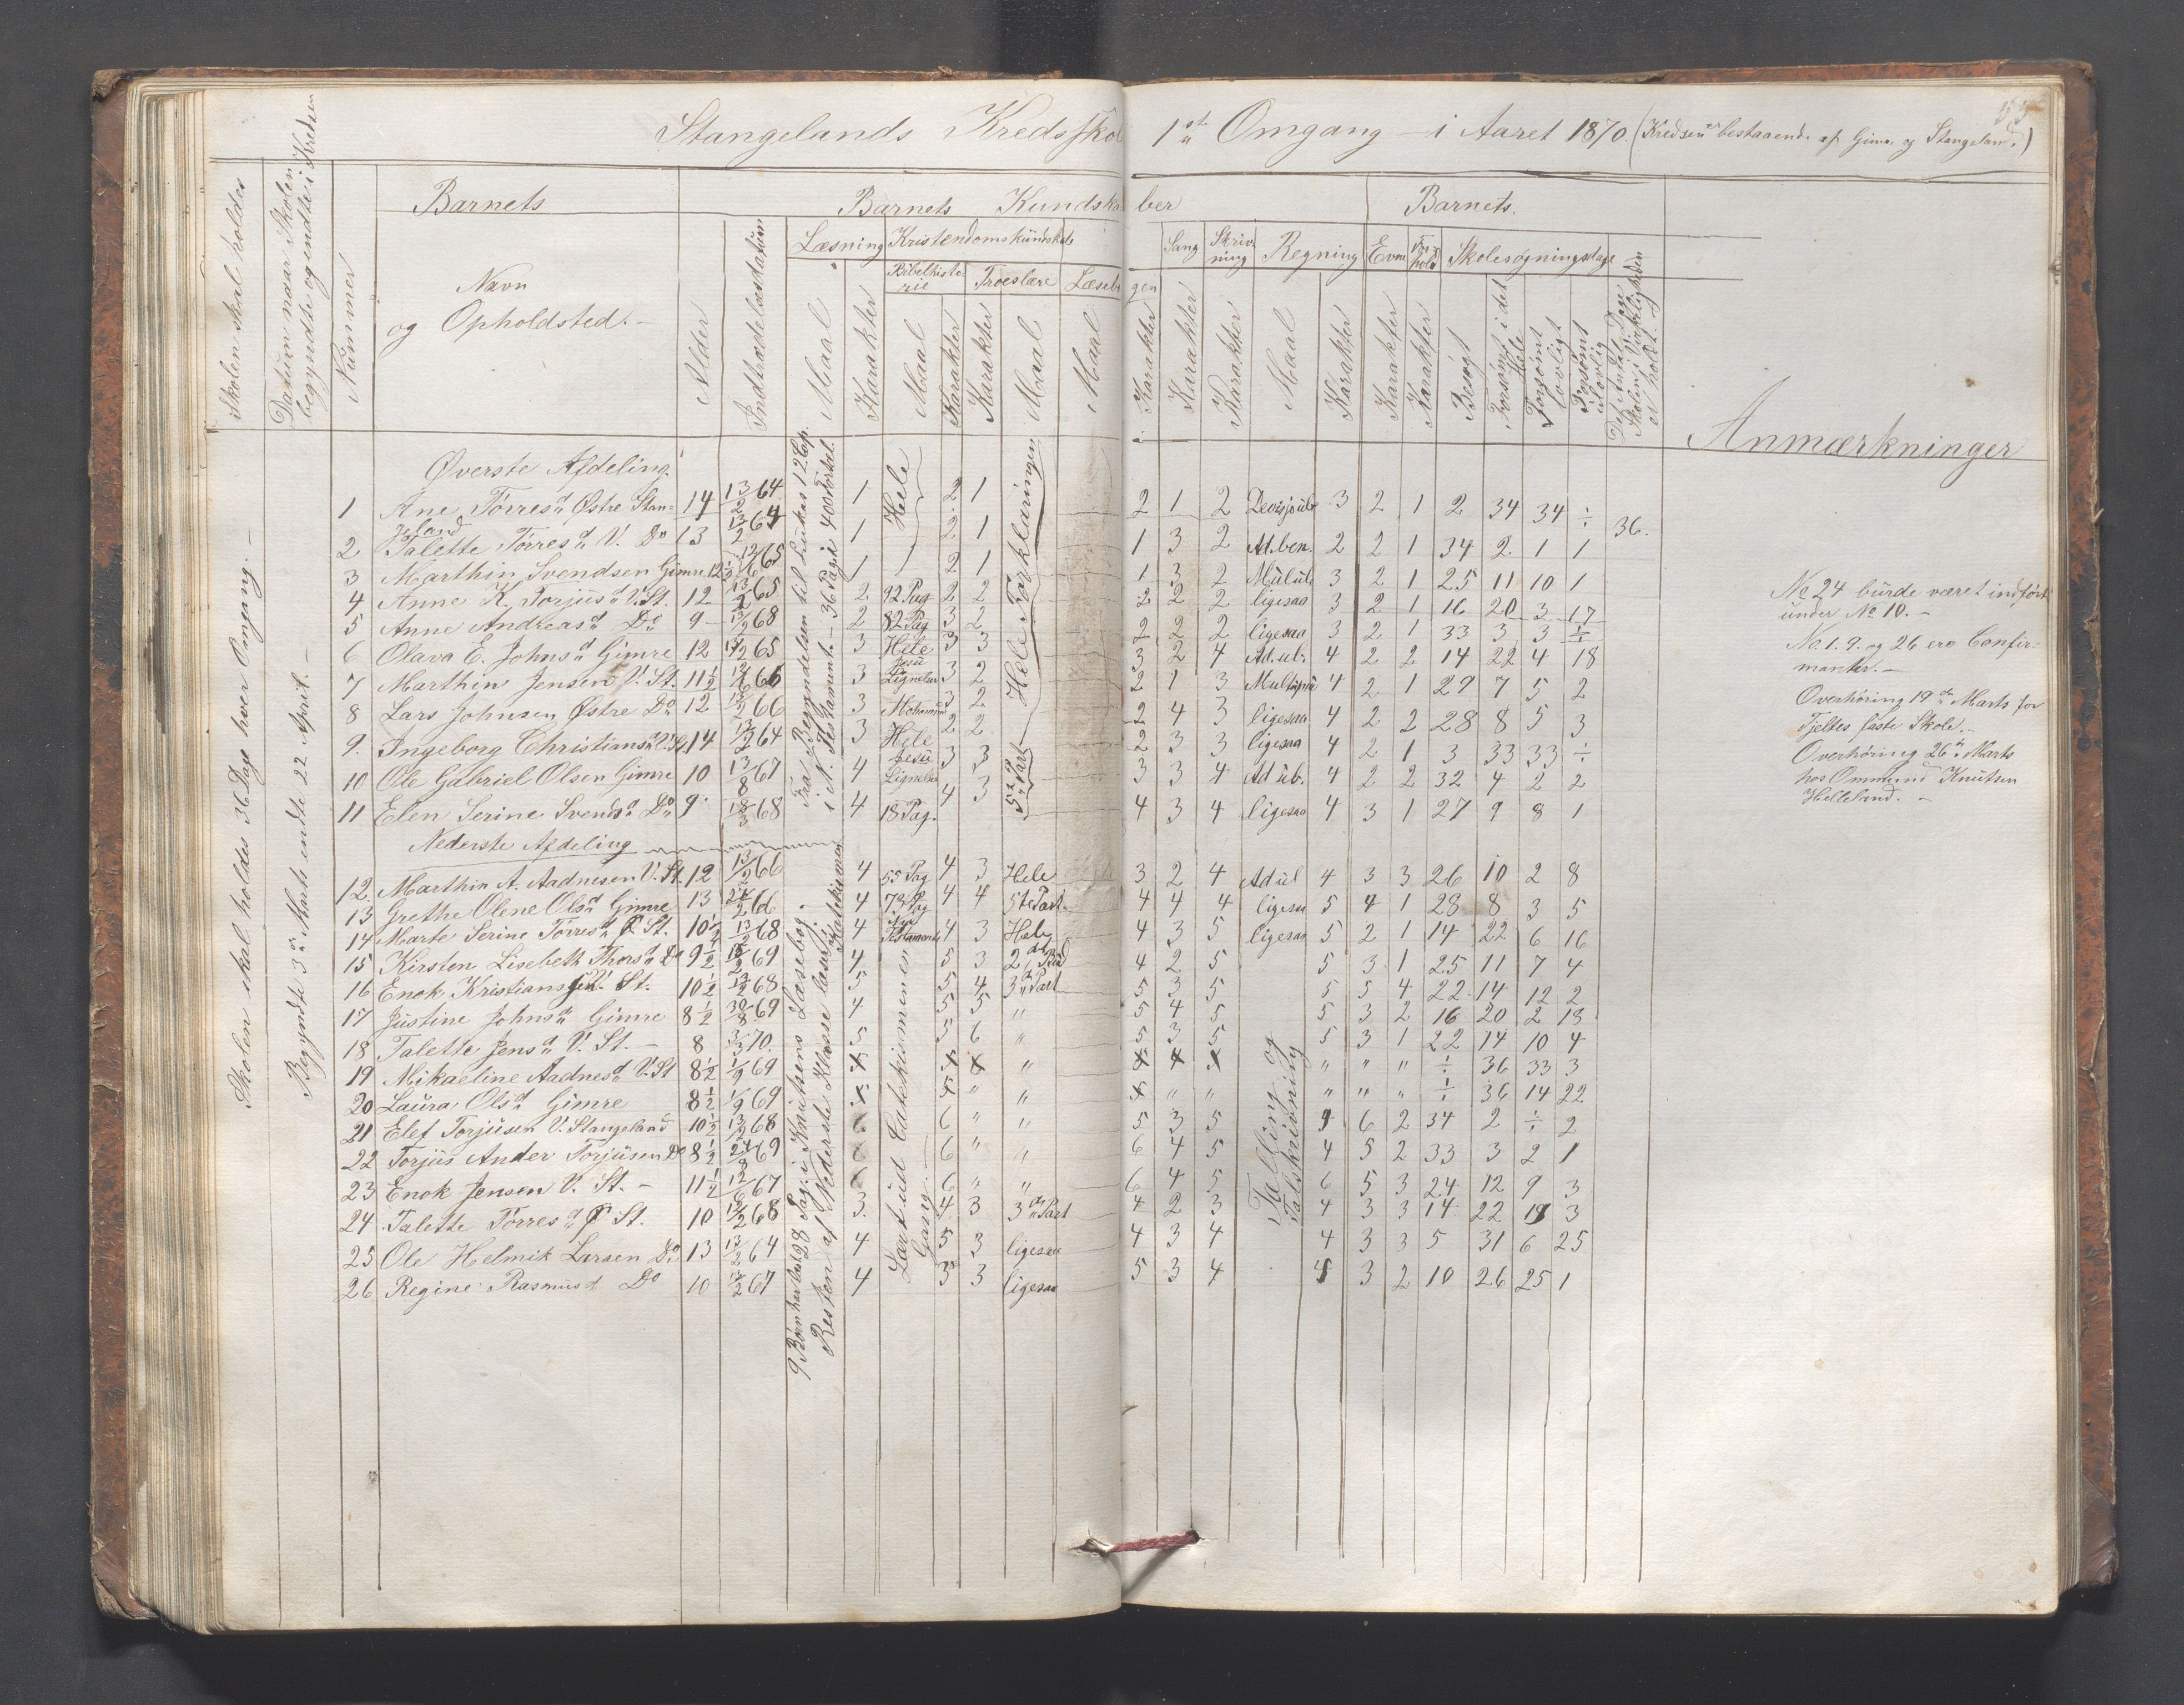 Stangelands Kredsskole 1ste Omgang – i Aaret 1870. (Kredsen er bestaaende af Gimre og Stangeland.)
Skolen skal holdes
Datum naar Skolen begyndte og endte i Kredsen
Nummer
Barnets
Navn
og Opholdsted. –
Barnets Kundskaber
Barnets.
Alder
Indtrædelsesdatum
Læsning
Kristendomskundskab
Bibelhistorie
Troeslære
Læsebogen
Sang
Skrivning
Regning
Evne
Forhold
Skolesøgningsdage
Maal
Karakter
Maal
Karakter
Karakter
Maal
Maal
Karakter
Karakter
Karakter
Maal
Karakter
Karakter
Karakter
Besøgt
Forsømt i det Hele
Forsømt lovligt
Forsømt ulovlig
Det Antal Dage Skolen i Virkeligheden er holdt.
Anmærkninger
Skolen skal holdes 36 Dage hver Omgang. –
Begyndte 3die Marts endte 22 April. –
Fra Begyndelsen til Lukas 12 Cap.
i N. Testament. – 36 Pag. i 40 Fortæl.
Hele Forklaringen
5te Part
Øverste Afdeling.
1 Ane Tørresd Østre Stangeland 14 13/2 64 1 Hele 2 1 2 1 2 3 2 1 2 34 34 ÷ 36.
2 Talette Tørresd V. Do 13 13/2 64 1 2 1 1 3 2 Ad. ben. 2 2 1 34 2 1 1
3 Marthin Svendsen Gimre 12 1/2 12/6 65 1 2 1 1 3 2 Mul ub. 3 2 1 25 11 10 1
4 Anne K. Torjusd V. St. 12 13/2 65 2 92 Pag 2 2 2 2 2 ligesaa 3 2 1 16 20 3 17
5 Anne Andreasd Do 9 – 13/2 68 2 82 Pag 3 2 2 2 2 ligesaa 3 2 1 33 3 3 ÷
6 Olava E. Johnsd Gimre 12 65 3 Hele 3 3 3 2 4 Ad. ub. 4 2 2 14 22 4 18
7 Marthin Jensen V. St. 11 1/2 12/6 66 3 Jesu Lignelser 3 2 2 1 3 4 2 1 29 7 5 2
8 Lars Johnsen Østre Do 12 13/2 66 3 3 2 2 4 3 ligesaa 4 2 2 28 8 5 3
9. Ingeborg Christiansd V. St. 14 13/2 64 3 Hele 2 2 2 3 3 ligesaa 4 2 1 3 33 33 ÷
10 Ole Gabriel Olsen Gimre 10 13/8 67 4 Jesu Lignelser 3 3 3 3 4 Ad ub. 4 2 2 32 4 2 2
11 Elen Serine Svendsd Do 9 18/3 68 4 18 Pag. 4 3 4 3 4 ligesaa 4 3 1 27 9 8 1
Nederste Afdeling
12. Marthin A. Aadnesen V. St. 12 13/2 66 4 55 Pag 4 3 Hele 3 2 4 Ad ub 4 3 3 26 10 2 8
13 Grethe Olene Olsd Gimre 13 66 4 73 Pag 4 4 5te Part. 4 4 4 ligesaa 5 4 1 28 8 3 5
14 Marte Serine Tørresd Ø St. 10 1/2 13/2 68 4 Nye Testamente 4 3 Hele 4 3 5 ligesaa 5 2 1 14 22 6 16
15 Kirsten Lisebeth Thorsd Do 9 1/2 69 4 5 3 4 2 5 5 3 1 25 11 7 4
16 Enok Kristiansen V. St. 10 1/2 13/2 68 5 5 4 3die Part 5 3 5 5 5 4 22 14 12 2
17 Justine Johnsd Gimre 8 1/2 30/8 69 4 5 5 " 5 4 5 5 3 2 16 20 2 18
18 Talette Jensd V. St. – 8 3/3 70. 5 5 6 " 5 3 5 5 3 1 22 14 10 4
19 Mikaeline Aadnesd V. St 8 1/2 1/9 69 x x x " x x x " " " ÷ 36 33 3
20 Laura Olsd Gimre 8 1/2 1/9 69 x x " " x " " " " " ÷ 36 14 22
21 Elef Torjusen V. Stangeland 10 1/2 13/2 68 6 6 " " 5 3 5 6 2 34 2 ÷ 2
22 Torjus Ander Torjusen Do 8 1/2 24/8 69 6 6 " " 6 4 5 4 5 2 33 3 2 1
23 Enok Jensen V. St. – 11 1/2 12/6 67 6 6 " " 6 4 5 6 5 3 24 12 9 3
24 Talette Tørresd Ø St. 10 13/2 68 3. 4 3 3die Part 4 2 3 4 3 3 14 22 19 3
25 Ole Helmik Larsen Do 13 13/2 64 4 5 3 ligesaa 4 3 4 4 3 3 5 31 6 25
26 Regine Rasmusd Do 10 13/2 67 4 3 3 ligesaa 5 3 4 4 3 2 10 26 25 1
9 Børn har læst 28 Pag. i Knutsens Læsebog.
Resten af Nederste Klasse læst i Katekismen
Lært ud Catekismen en Gang.
Tælling og
Talskrivning
No 24 burde været indført
under No 10. –
No. 1. 9. og 26 ere Confir=
manter. –
Overhøring 19de Marts for
Tjeltes faste Skole. –
Overhøring 26de Marts
hos Ommund Knutsen
Helleland. –